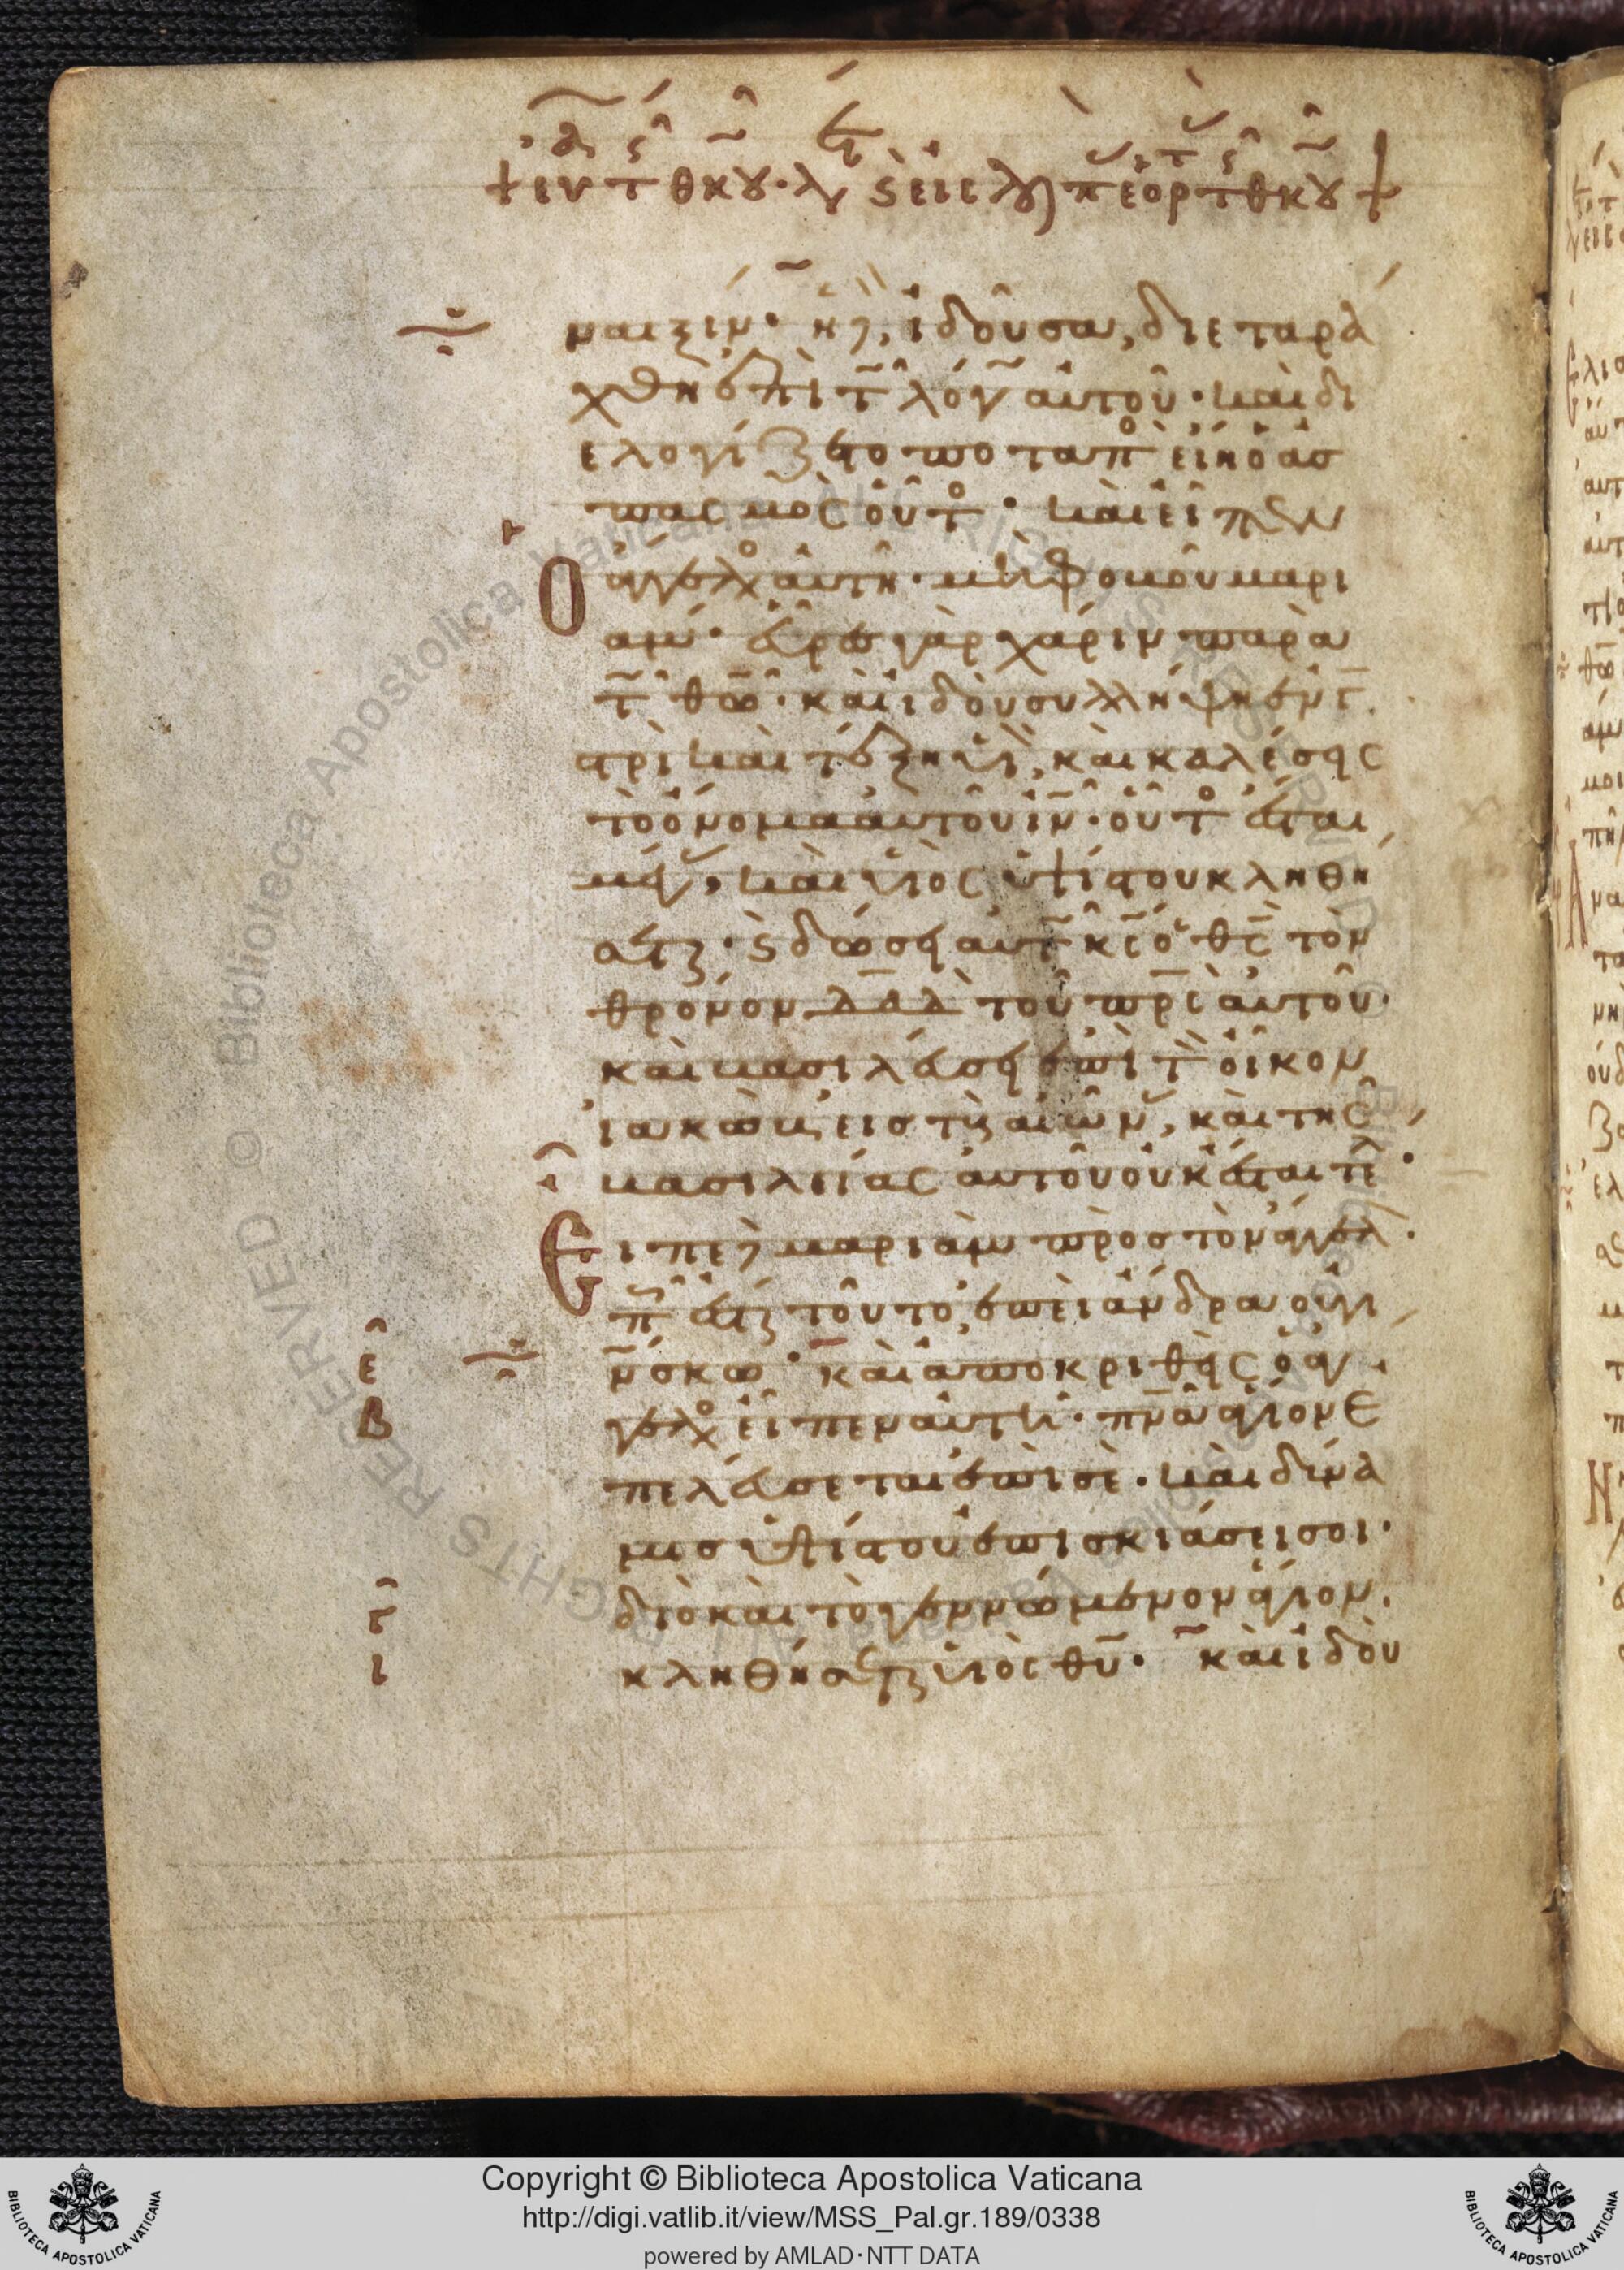 ναιξίν· ἡ δὲ ἰδοῦσα, διεταρά
χθη ἐπὶ τῷ λόγῳ αὐτοῦ· καὶ δι
ελογίζετο ποταπὸς εἴη ὁ ἀσ
πασμὸς οὗτος· καὶ εἶπεν
Ὁ ἄγγελος αὐτῇ· μὴ φοβοῦ μαρι
άμ· εὗρες γὰρ χάριν παρὰ
τῷ θῶ· καὶ ἰδοὺ συλλήψη ἐν γασ
τρὶ καὶ τέξη υἱὸν, καὶ καλέσεις
τὸ ὄνομα αὐτοῦ ιν· οὗτος ἔσται
μέγας, καὶ υἱὸς ὑψίστου κληθή
σεται· καὶ δώσει αὐτῷ κς ὁ θς τὸν
θρόνον δαδ τοῦ πρς αὐτοῦ·
καὶ βασιλεύσει ἐπὶ τὸν οἶκον
ἰακὼβ εἰς τοὺς αἰῶνας, καὶ τῆς
βασιλείας αὐτοῦ οὐκ ἔσται τέλος·
Εἶπε δὲ μαριὰμ πρὸς τὸν ἄγγελον·
πῶς ἔσται τοῦτο, ἐπεὶ ἄνδρα οὐ γι
νώσκω· καὶ ἀποκριθεὶς ὁ ἄγ
γελος εἶπεν αὐτῇ· πνα ἅγιον ἐ
πελεύσεται ἐπὶ σέ· καὶ δύνα
μις ὑψίστου ἐπισκιάσει σοι·
διὸ καὶ τὸ γεννώμενον ἅγιον,
κληθήσεται υἱὸς θυ· καὶ ἰδοὺ
Copyright © Biblioteca Apostolica Vaticana
http://digi.vatlib.it/view/MSS_Pal.gr.189/0338
powered by AMLAD·NTT DATA
BIBLIOTECA APOSTOLICA VATICANA
BIBLIOTECA APOSTOLICA VATICANA